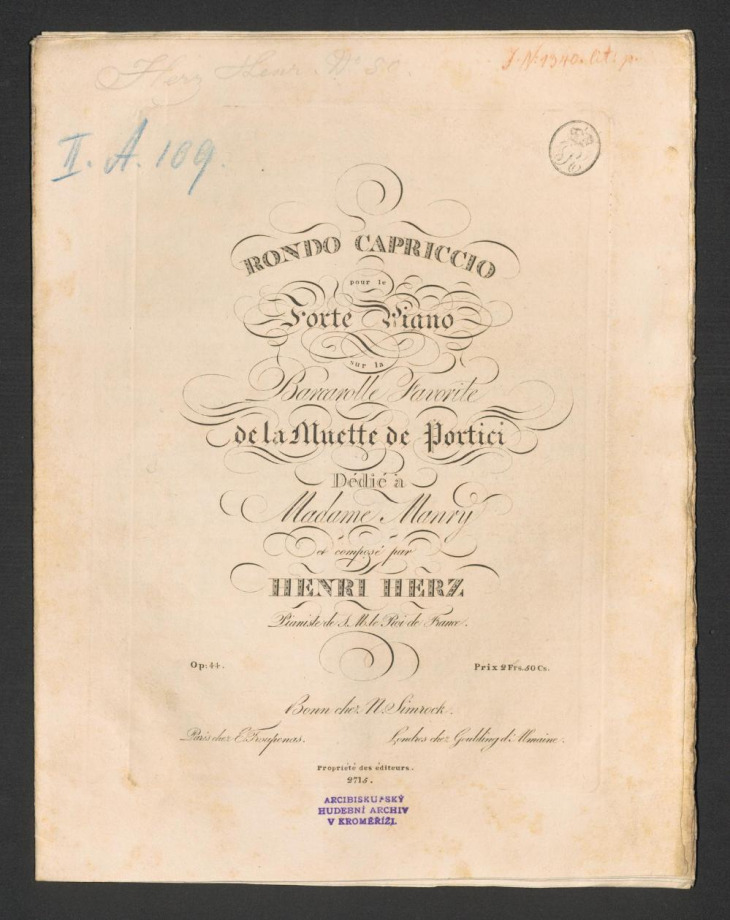 Herz Henr. Nº 30.
J. Nº 1340. lit. p.
II. A. 109.
RONDO CAPRICCIO
pour le
Forte Piano
sur la
Barcarolle Favorite
de la Muette de Portici
Dédié à
Madame Manry
et composé par
HENRI HERZ
Pianiste de S. M. le Roi de France.
Op: 44.
Prix 2 Frs. 50 Cs.
Bonn chez N. Simrock.
Paris chez E. Troupenas.
Londres chez Goulding d'Almaine.
Propriété des éditeurs.
2715.
ARCIBISKUPSKÝ
HUDEBNÍ ARCHIV
V KROMĚŘÍŽI.